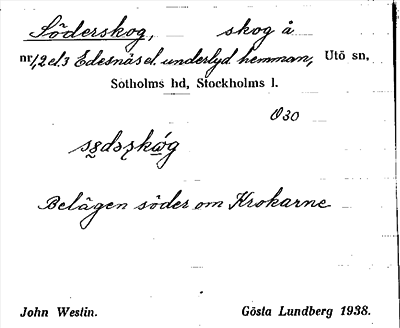 Söderskog, skog å
nr 1, 2 el. 3 Edesnäs el. underlyd hemman, Utö sn,
Sotholms hd, Stockholms l.
Ö30
Belägen söder om Krokarne
John Westin. Gösta Lundberg 1938.